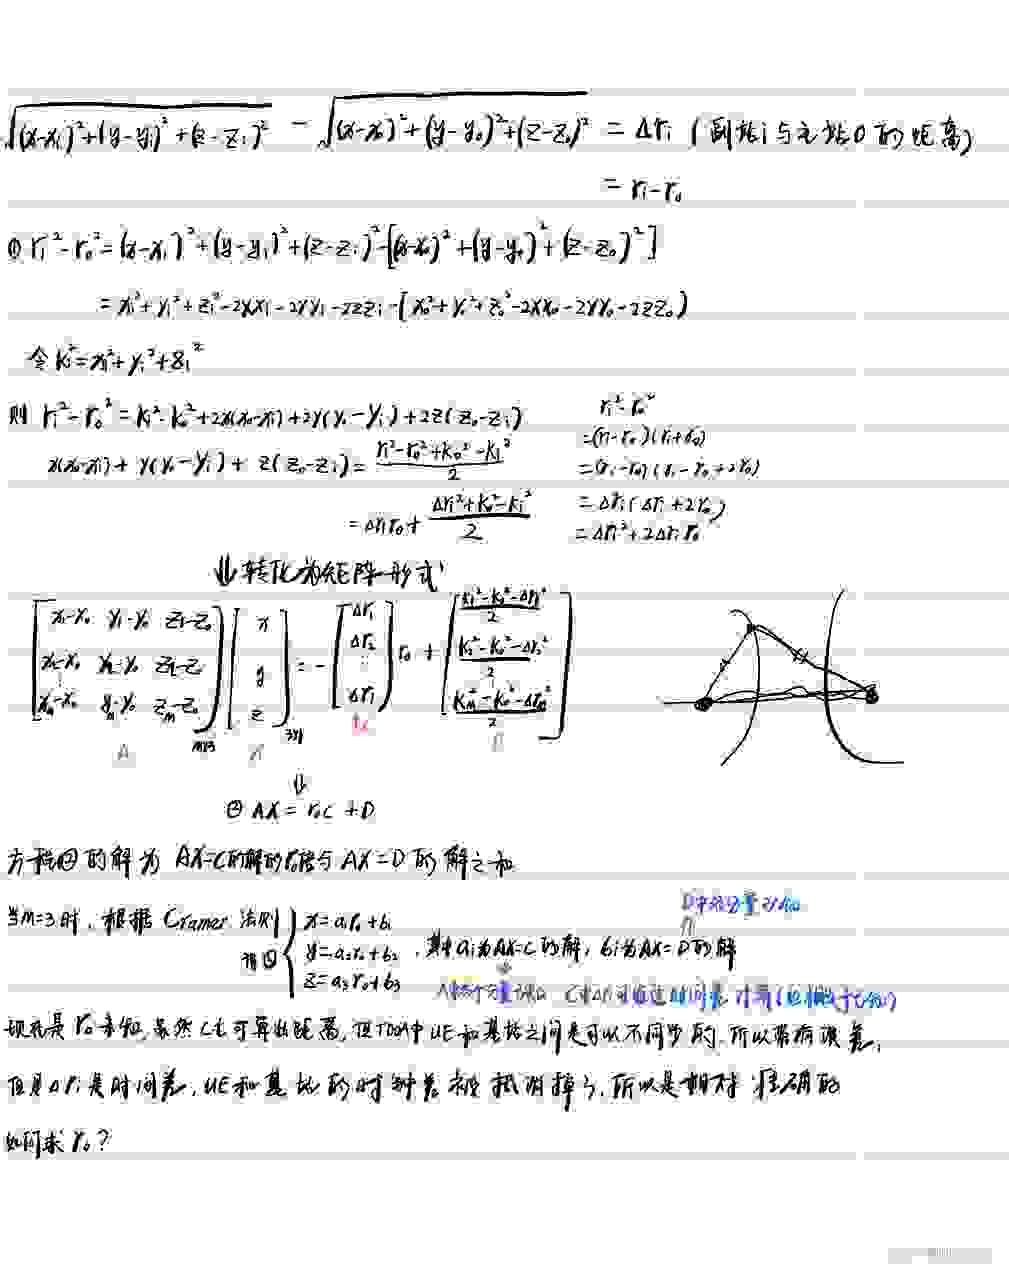 √(x-xi)²+(y-yi)²+(z-zi)² - √(x-x₀)²+(y-y₀)²+(z-z₀)² = Δri (副站i与主站0的距离)
= ri-r₀
① ri²-r₀²=(x-xi)²+(y-yi)²+(z-zi)²-[(x-x₀)²+(y-y₀)²+(z-z₀)²]
= xi²+yi²+zi²-2xxi-2yyi-2zzi-[x₀²+y₀²+z₀²-2xx₀-2yy₀-2zz₀]
令 ki²=xi²+yi²+zi²
则 ri²-r₀²=ki²-k₀²+2x(x₀-xi)+2y(y₀-yi)+2z(z₀-zi)
x(x₀-xi)+y(y₀-yi)+z(z₀-zi)=(ri²-r₀²+k₀²-ki²)/2
=Δri r₀+(Δri²+k₀²-ki²)/2
ri²-r₀²
=(ri-r₀)(ri+r₀)
=(ri-r₀)(ri-r₀+2r₀)
=Δri(Δri+2r₀)
=Δri²+2Δri r₀
⇓转化为矩阵形式
[x₁-x₀ y₁-y₀ z₁-z₀] [x] [Δr₁] [(k₁²-k₀²-Δr₁²)/2]
[x₂-x₀ y₂-y₀ z₂-z₀] [y] =- [Δr₂] r₀ + [(k₂²-k₀²-Δr₂²)/2]
[xm-x₀ ym-y₀ zm-z₀] [z] [Δri] [(km²-k₀²-Δrm²)/2]
M×3 3×1
A X C D
⇓
② AX= r₀C +D
方程②的解为 AX=C的解的r₀倍与AX=D的解之和
当M=3时,根据Cramer法则
得② {x=a₁r₀+b₁
y=a₂r₀+b₂
z=a₃r₀+b₃
,其中ai为AX=C的解,bi为AX=D的解
D中各分量已知
A中各个分量已知 C中Δri可由到达时间差计算
现在是r₀未知,虽然也可算出距离,但TDOA中UE和基站之间是可以不同步的,所以带有误差,
但是Δri是时间差,UE和基站的时钟差被抵消掉了,所以是相对准确的
如何求r₀?